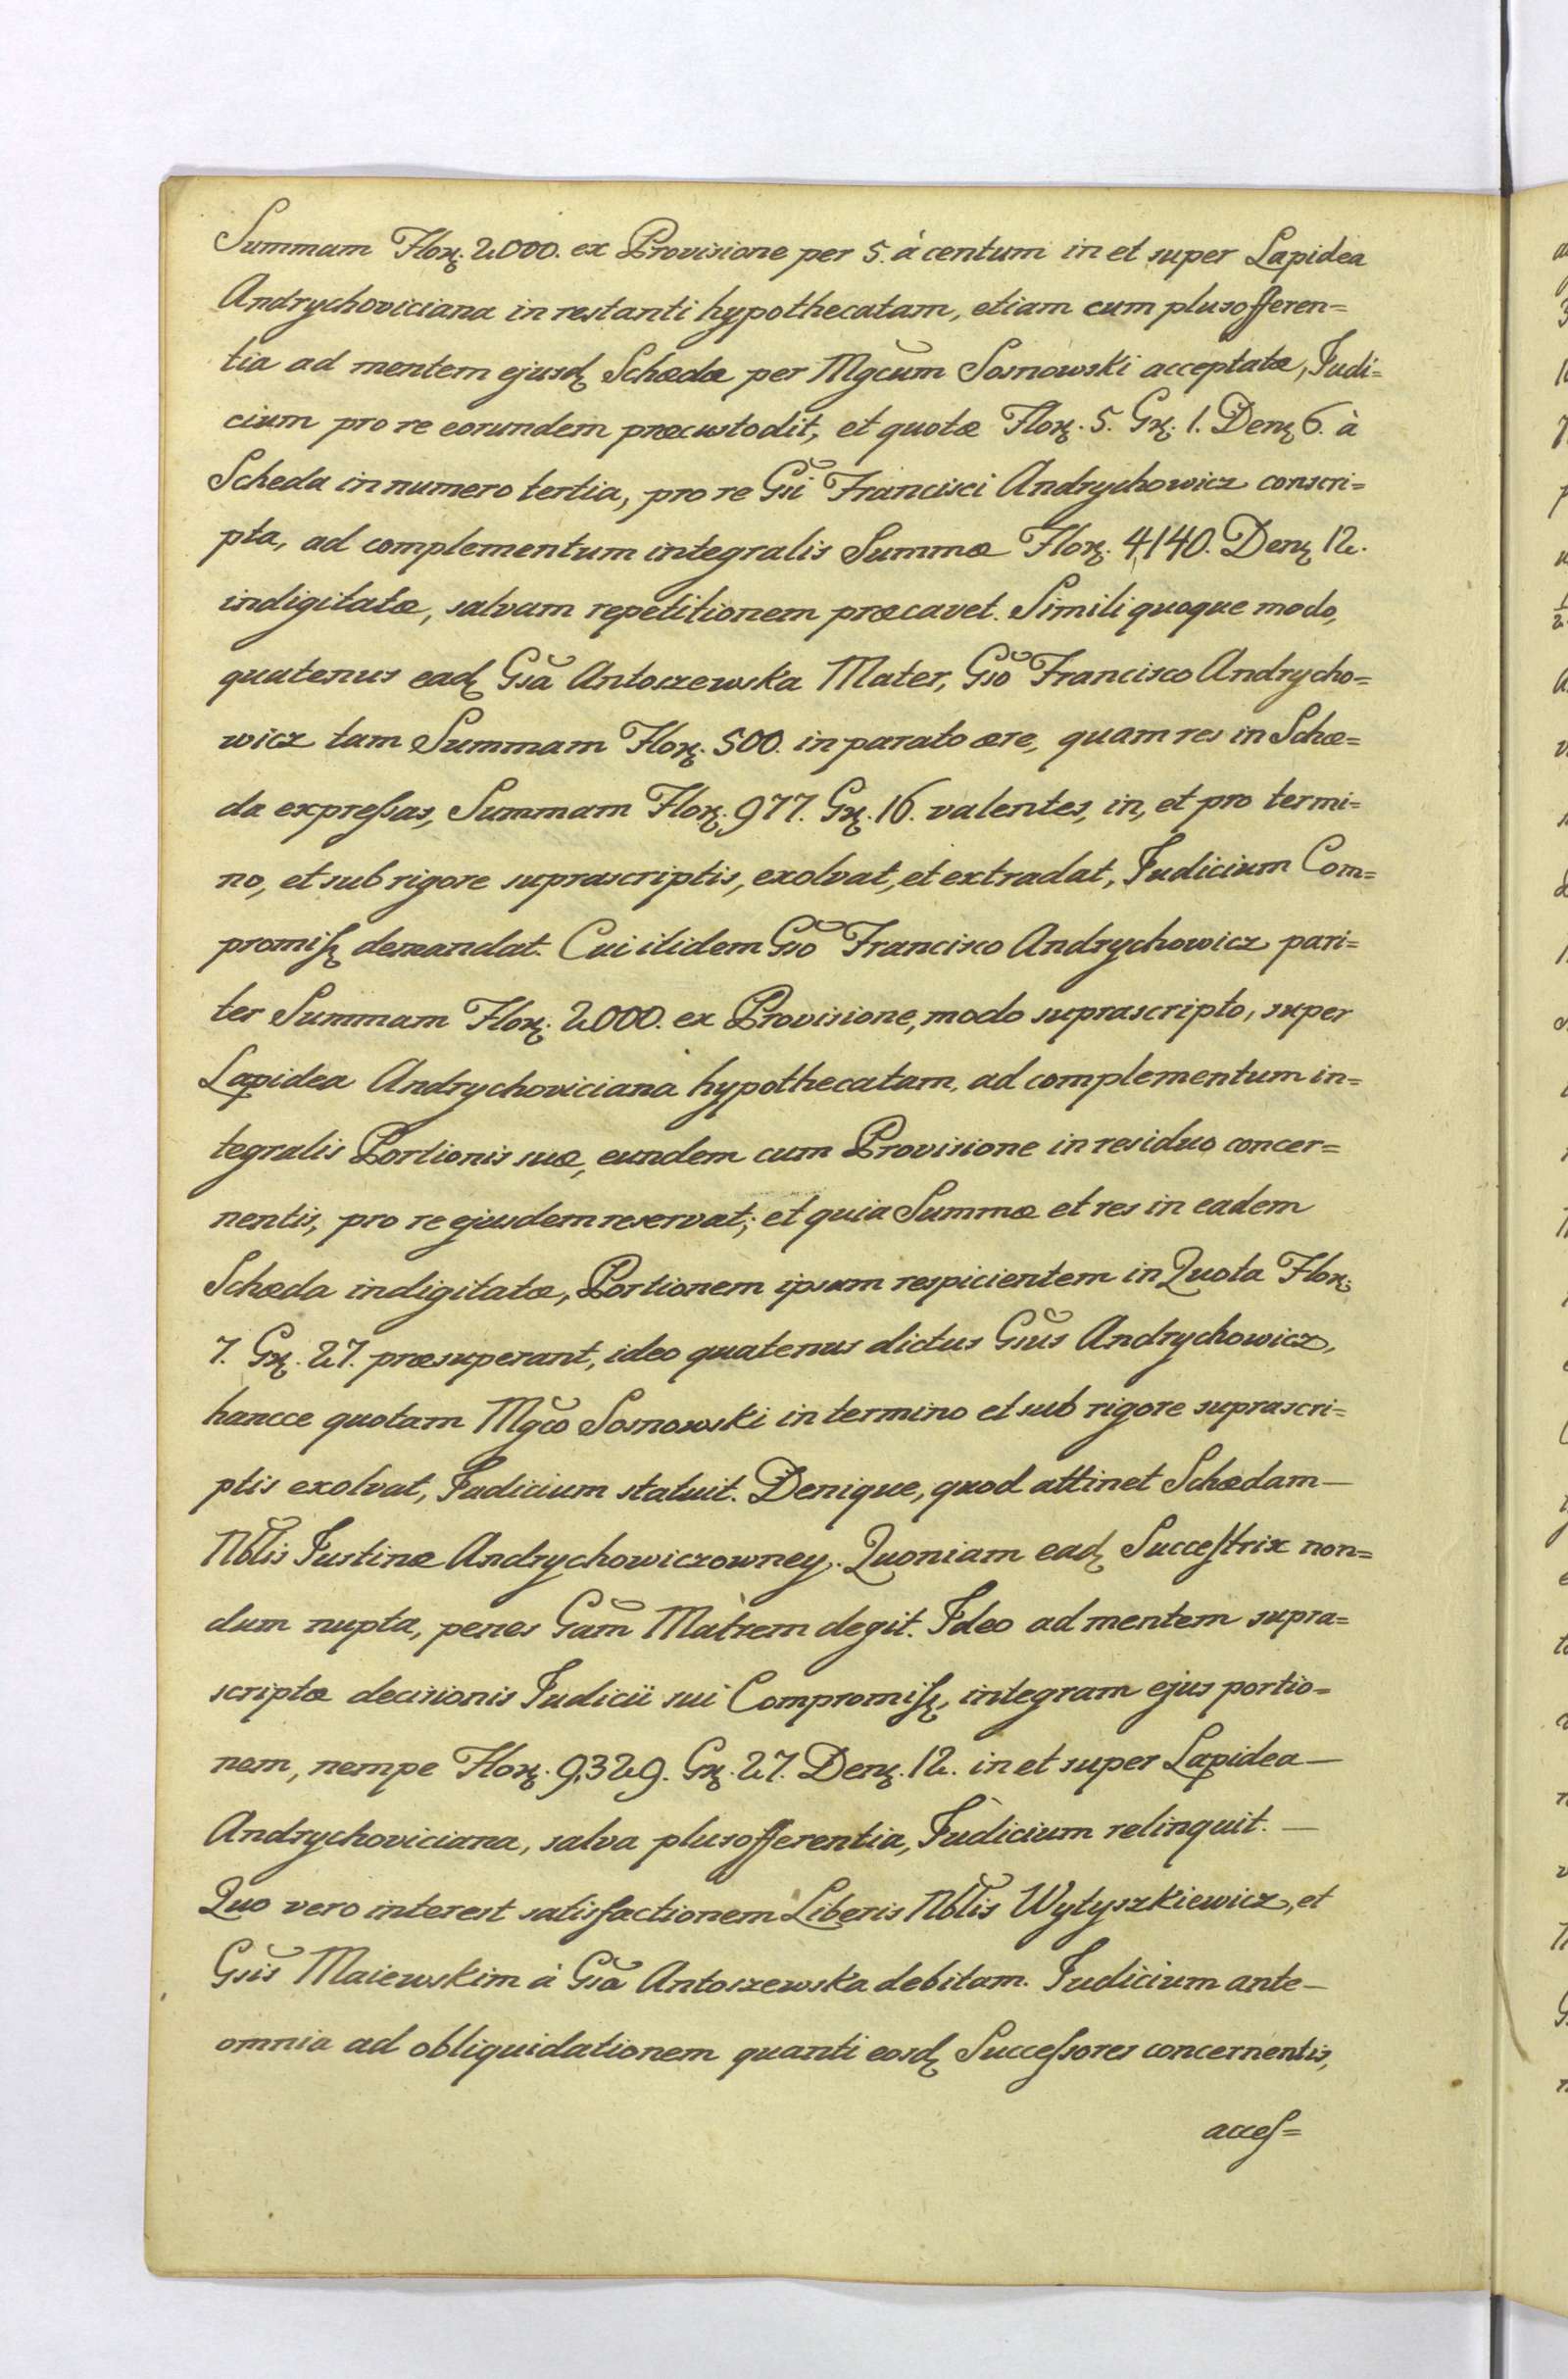 Summam Flor. 2000. ex Provisione per 5. à centum in et super Lapidea
Andrychoviciana in restanti hypothecatam, etiam cum plusofferen=
tia ad mentem ejusd. Schedæ per Mgcum Sosnowski acceptatæ, Judi=
cium pro re eorundem præcustodit, et quotæ Flor. 5. Gr. 1. Den. 6. à
Scheda in numero tertia, pro re Gsi Francisci Andrychowicz conscri=
pta, ad complementum integralis Summæ Flor. 4,140. Den. 12.
indigitatæ, salvam repetitionem præcavet. Simili quoque modo,
quatenus ead. Gsa Antoszewska Mater, Gso Francisco Andrycho=
wicz tam Summam Flor. 500. in parato ære, quam res in Sche=
da expressas, Summam Flor. 977. Gr. 16. valentes, in, et pro termi=
no, et sub rigore suprascriptis, exolvat, et extradat, Judicium Com=
promiss. demandat. Cui itidem Gso Francisco Andrychowicz pari=
ter Summam Flor. 2000. ex Provisione, modo suprascripto, super
Lapidea Andrychoviciana hypothecatam, ad complementum in=
tegralis Portionis suæ, eundem cum Provisione in residuo concer=
nentis, pro re ejusdem reservat; et quia Summæ et res in eadem
Scheda indigitatæ, Portionem ipsum respicientem in Quota Flor.
7. Gr. 27. præsuperant, ideo quatenus dictus Gsus Andrychowicz,
hancce quotam Mgco Sosnowski in termino et sub rigore suprascri=
ptis exolvat, Judicium statuit. Denique, quod attinet Schedam—
Nblis Justinæ Andrychowiczowney. Quoniam ead. Successtrix non=
dum nupta, penes Gsam Màtrem degit. Ideo ad mentem supra=
scriptæ decisionis Judicii sui Compromiss. integram ejus portio=
nem, nempe Flor. 9,329. Gr. 27. Den. 12. in et super Lapidea—
Andrychoviciana, salva plusofferentia, Judicium relinquit.—
Quo vero interest satisfactionem Liberis Nblis Wytyszkiewicz, et
Gsis Maiewskim à Gsa Antoszewska debitam. Judicium ante—
omnia ad obliquidationem quanti eosd. Successores concernentis,
acces=